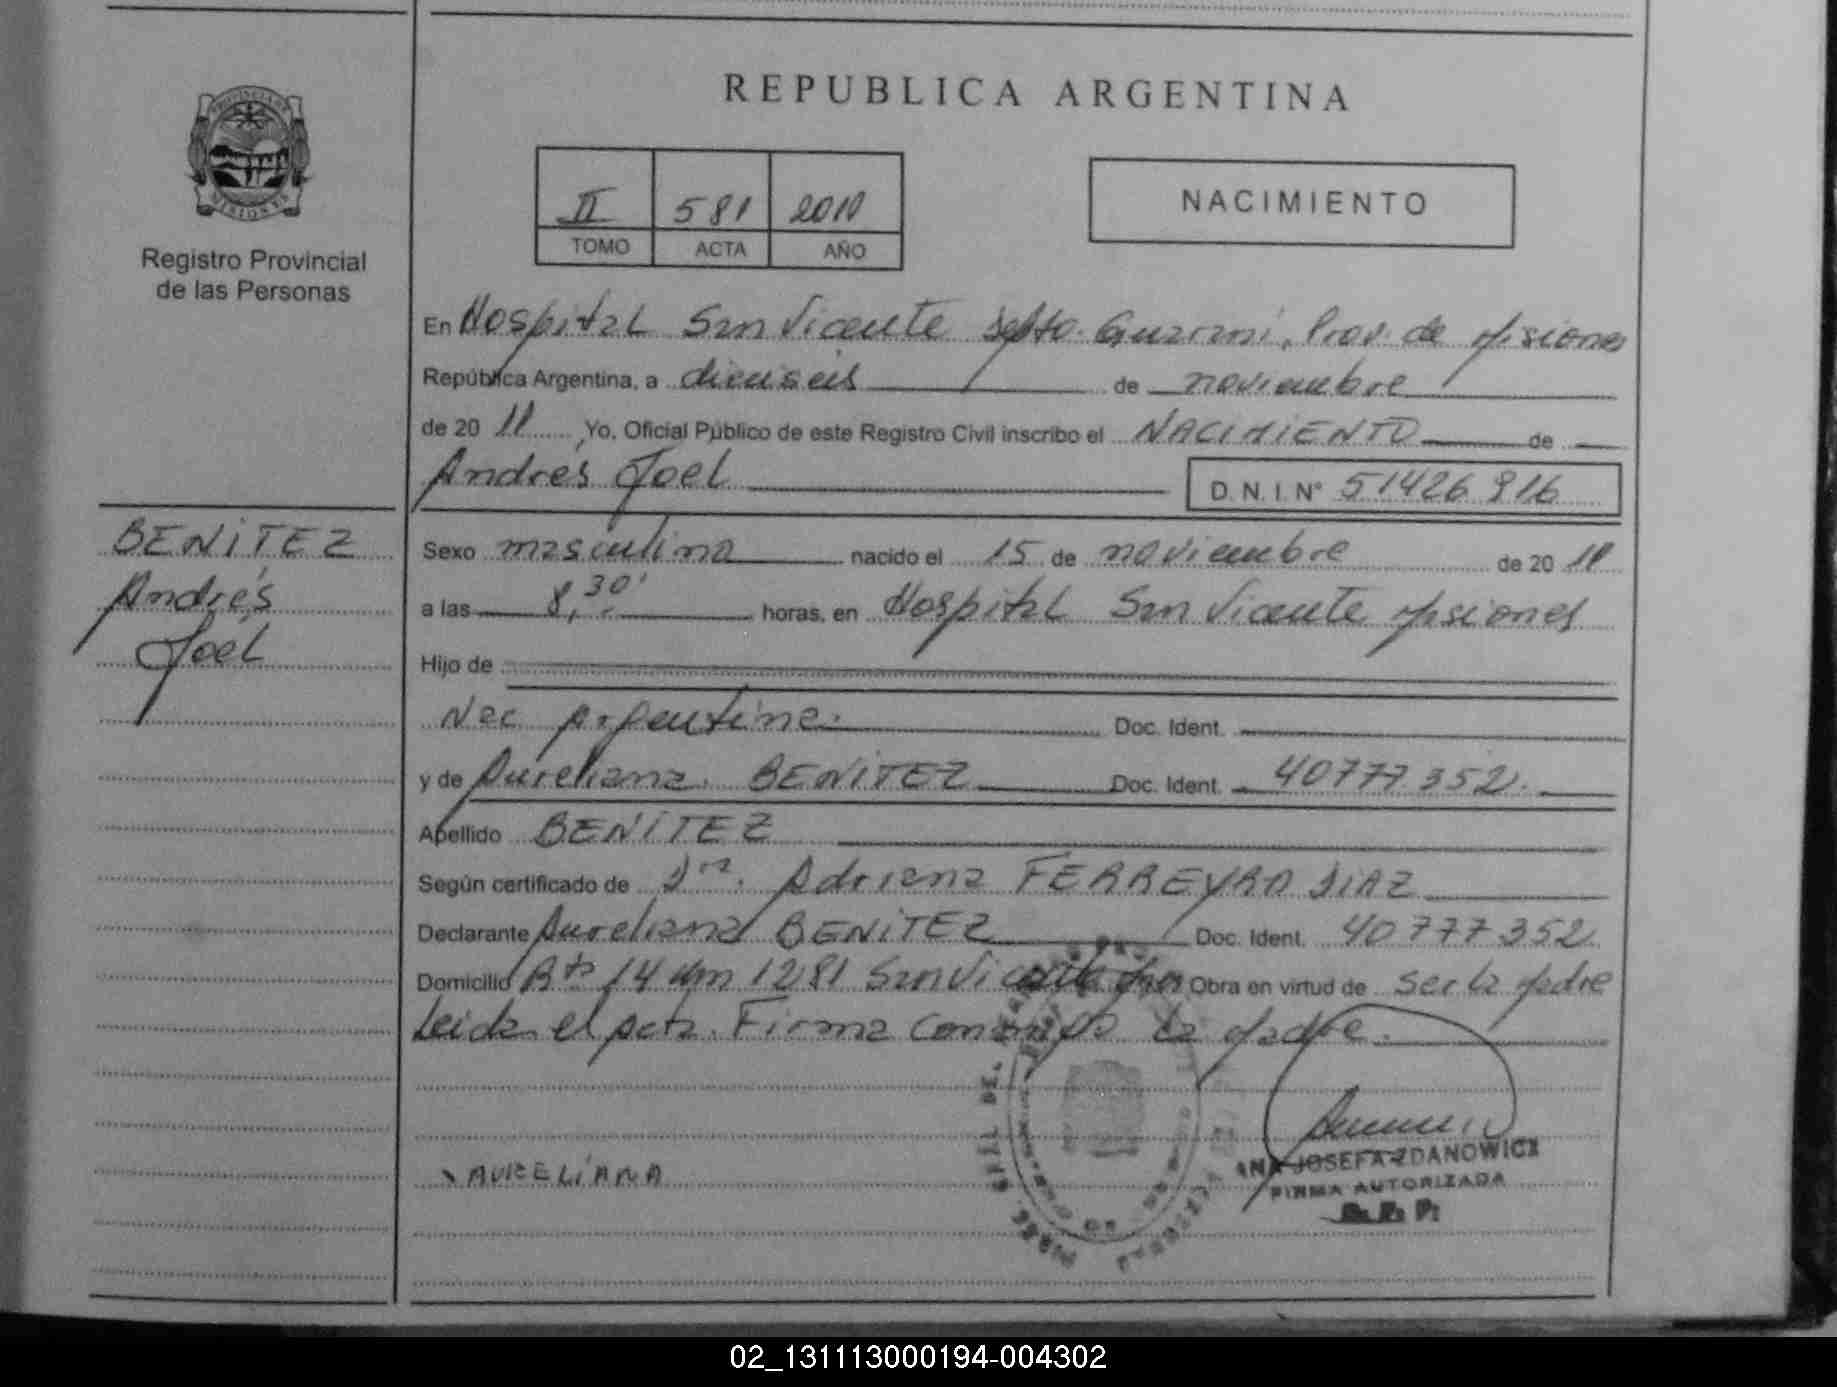 REPUBLICA ARGENTINA
PROVINCIA DE
MISIONES
Registro Provincial
de las Personas
II 581
TOMO ACTA AÑO
NACIMIENTO
En Hospital San Vicente Depto. Guaraní, Prov. de Misiones
República Argentina, a dieciseis de noviembre
de 20 Yo, Oficial Público de este Registro Civil inscribo el NACIMIENTO de
Andrés Joel D.N.I. Nº 51426916
BENiTEZ
Andrés
Joel
Sexo masculino nacido el 15 de noviembre de 20
a las 8,30' horas, en Hospital San Vicente Misiones
Hijo de
Nac. Argentina. Doc. Ident.
y de Aureliana BENiTEZ Doc. Ident. 40777.352.
Apellido BENiTEZ
Según certificado de Dra. Adriana FERREYRA DIAZ
Declarante Aureliana BENiTEZ Doc. Ident. 40777352
Domicilio Rta 14 Km 1281 San Vicente Obra en virtud de ser la Madre
Leida el Acta. Firma la Madre.
AURELiANA
ANA JOSEFA ZDANOWICZ
FIRMA AUTORIZADA
R. P. P.
02_131113000194-004302